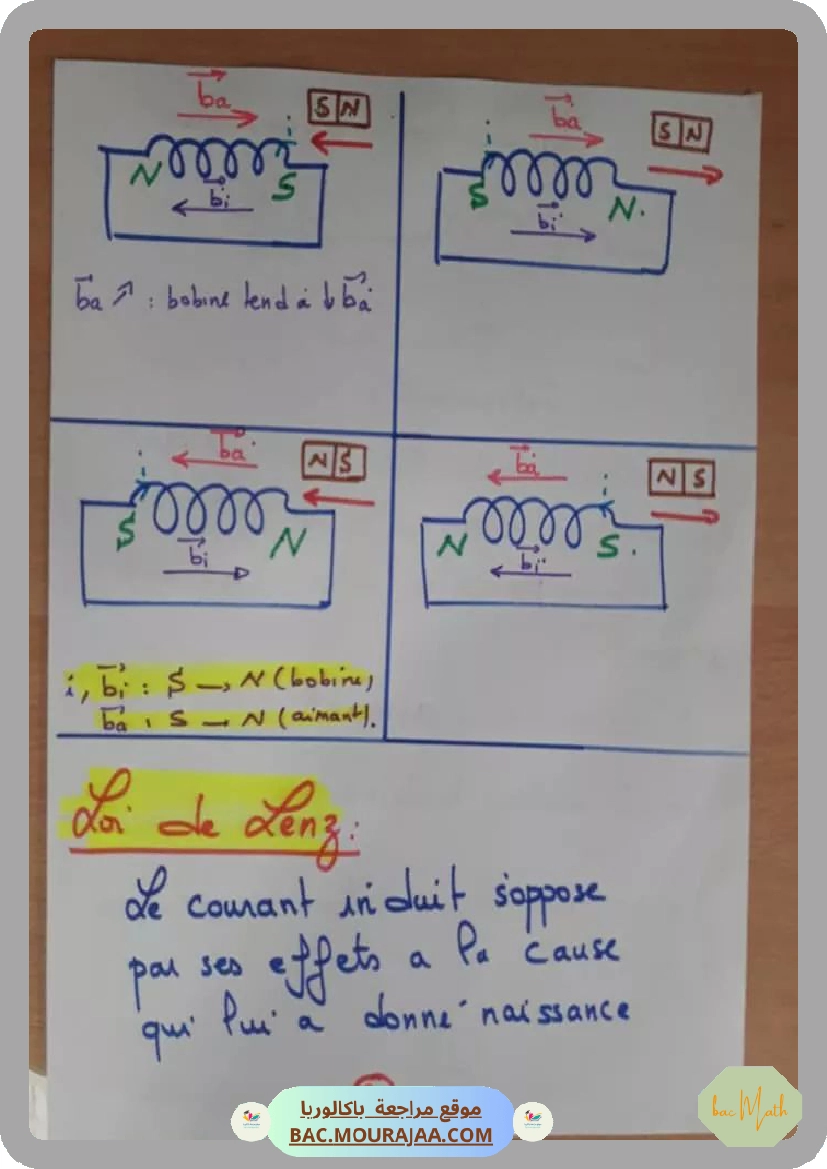 ba
S N
i
N
S
bi
ba ↗ : bobine tend à ↓ ba
ba
S N
i
S
N.
bi
ba
N S
i
S
N
bi
i, bi : S → N (bobine)
ba : S → N (aimant).
ba
N S
i
N
S.
bi
Loi de Lenz:
Le courant induit s'oppose
par ses effets a la cause
qui lui a donné naissance
موقع مراجعة باكالوريا
BAC.MOURAJAA.COM
bac Math